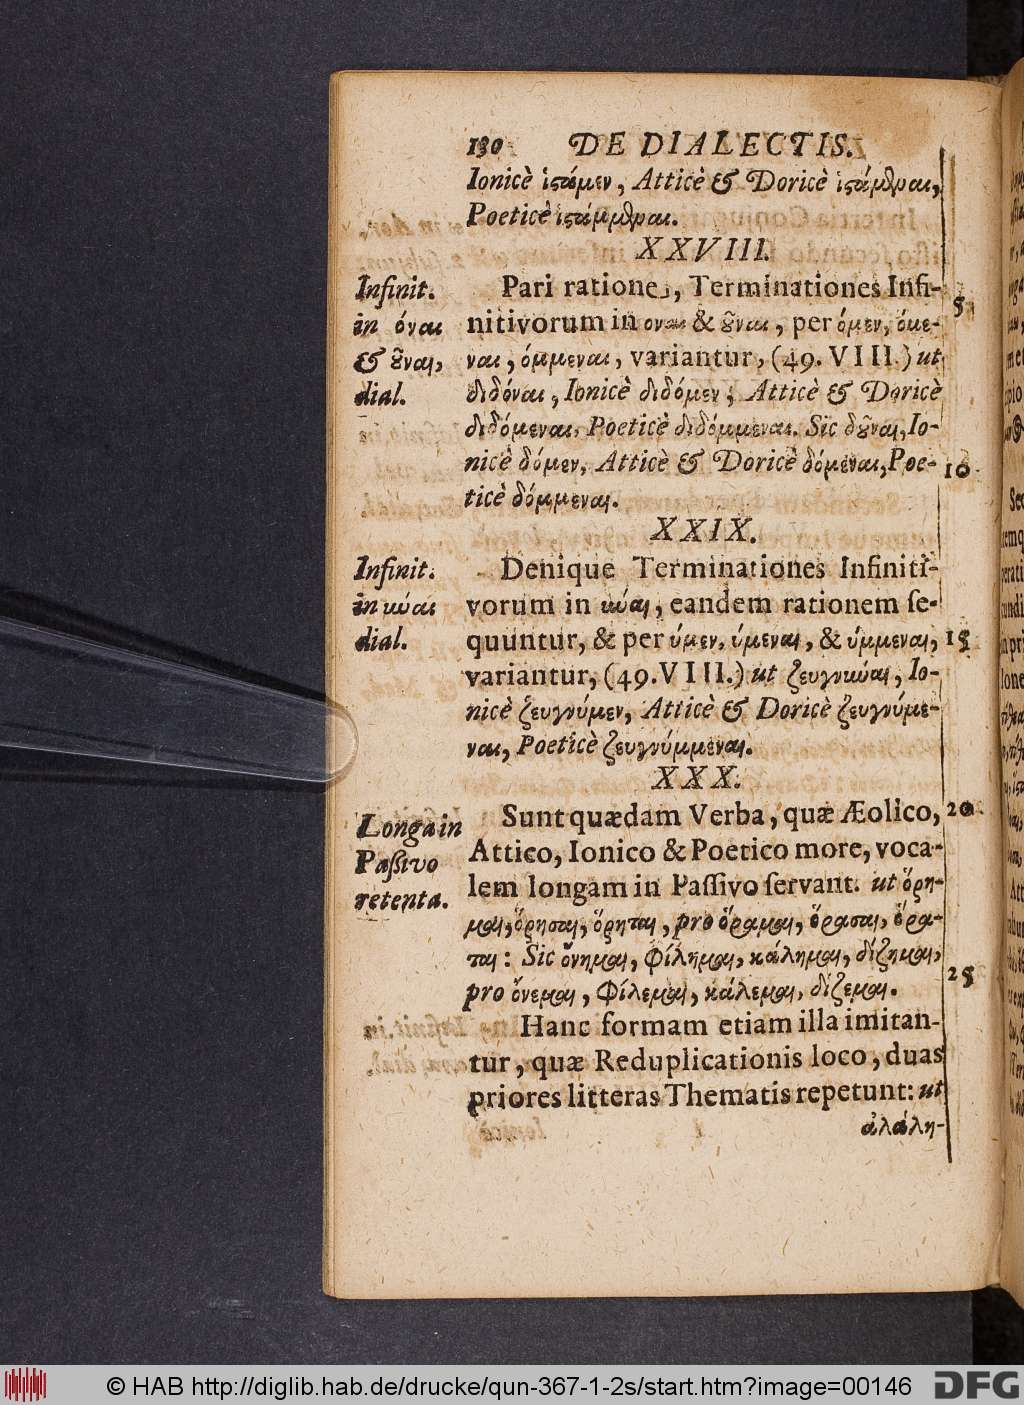 130 DE DIALECTIS.
Ionicè ἱστάμεν, Atticè & Doricè ἱστάμεναι,
Poeticè ἱστάμμεναι.
XXVIII.
Infinit.
in όναι
& ȣ͂ναι,
dial.
Pari ratione, Terminationes Infi-
nitivorum in οναι & ȣ͂ναι, per όμεν, όμε-
ναι, όμμεναι, variantur, (49. VIII.) ut
διδόναι, Ionicè διδόμεν; Atticè & Doricè
διδόμεναι, Poeticè διδόμμεναι. Sic δȣ͂ναι, Io-
nicè δόμεν, Atticè & Doricè δόμεναι, Poe-
ticè δόμμεναι.
XXIX.
Infinit.
in ύναι
dial.
Denique Terminationes Infiniti-
vorum in ύναι, eandem rationem ſe-
quuntur, & per ύμεν, ύμεναι, & ύμμεναι,
variantur, (49. VIII.) ut ζευγνύναι, Io-
nicè ζευγνύμεν, Atticè & Doricè ζευγνύμε-
ναι, Poeticè ζευγνύμμεναι.
XXX.
Longa in
Paſſivo
retenta.
Sunt quædam Verba, quæ Æolico,
Attico, Ionico & Poetico more, voca-
lem longam in Paſſivo ſervant. ut ὅρη-
μαι, ὅρησαι, ὅρηται, pro ὅραμαι, ὅρασαι, ὅρα-
ται: Sic ὄνημαι, φίλημαι, κάλημαι, δίζημαι,
pro ὄνεμαι, φίλεμαι, κάλεμαι, δίζεμαι.
Hanc formam etiam illa imitan-
tur, quæ Reduplicationis loco, duas
priores litteras Thematis repetunt: ut
ἀλάλη-
5
10
15
20
25
© HAB http://diglib.hab.de/drucke/qun-367-1-2s/start.htm?image=00146
DFG